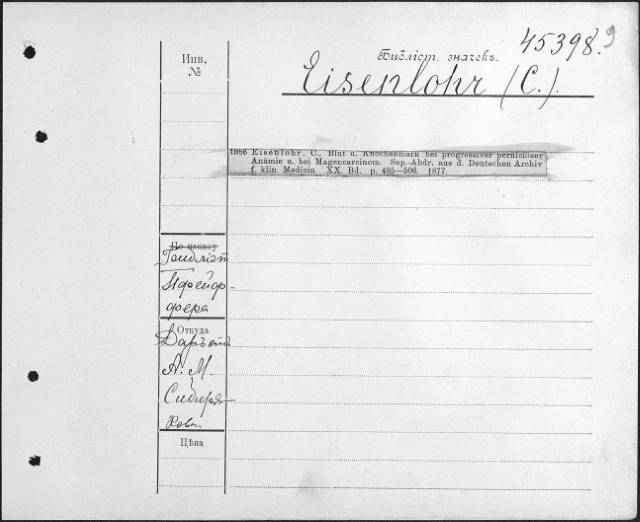 45398.9
Библіот. значекъ.
Eisenlohr (C.).
Инв.
№
1086 Eisenlohr, C., Blut u. Knochenmark bei progressiver perniciöser
Anämie u. bei Magencarcinom. Sep.-Abdr. aus d. Deutschen Archiv
f. klin. Medicin XX. Bd. p. 495—506. 1877.
По заказу
Пфейф-
фера
Откуда
Даръ отъ
А. М.
Сибиря-
кова.
Цѣна